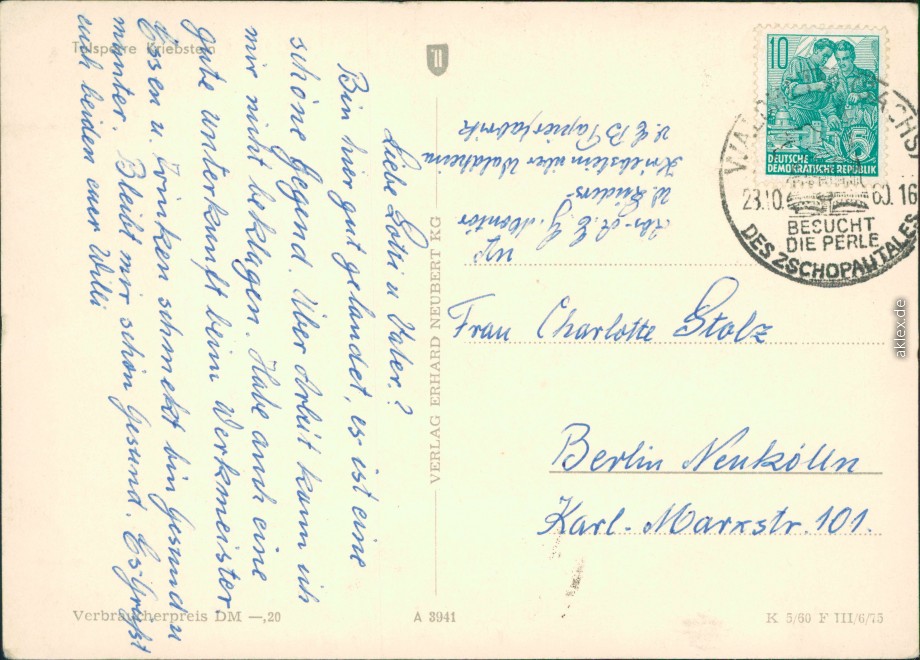 Talsperre Kriebstein
Liebe Lotti u Vater.?
Bin hier gut gelandet, es ist eine
schöne Gegend. Über Arbeit kann ich
mir nicht beklagen. Habe auch eine
gute Unterkunft beim Werkmeister
Essen u. Trinken schmekt bin Gesund u
munter. Bleibt mir schön Gesund. Es Grüßt
euch beiden euer Willi
VERLAG ERHARD NEUBERT KG
Abs. A.E.G. Montör
W.
Kriebstein über Waldheim
V.E.B Papierfabrik
10
5
DEUTSCHE
DEMOKRATISCHE REPUBLIK
23.10. 60.16
BESUCHT
DIE PERLE
DES ZSCHOPAUTALES
Frau Charlotte Stolz
Berlin Neukölln
Karl-Marxstr. 101.
Verbraucherpreis DM —,20
A 3941
K 5/60 F III/6/75
aklex.de